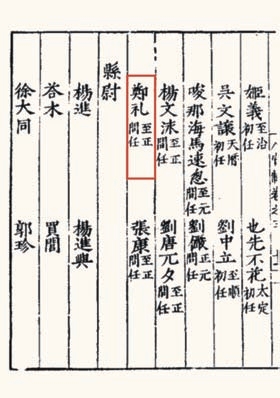 姬義至治初任　也先不花太定初任
吳文讓天曆初任　劉中立至順初任
唆那海馬速忽至元間任　劉儼至元間任
楊文洙至正間任　劉唐元夕至正間任
鄭礼至正間任　張康至正間任
縣尉
楊進　楊進興
荅木　買閭
徐大同　郭珍